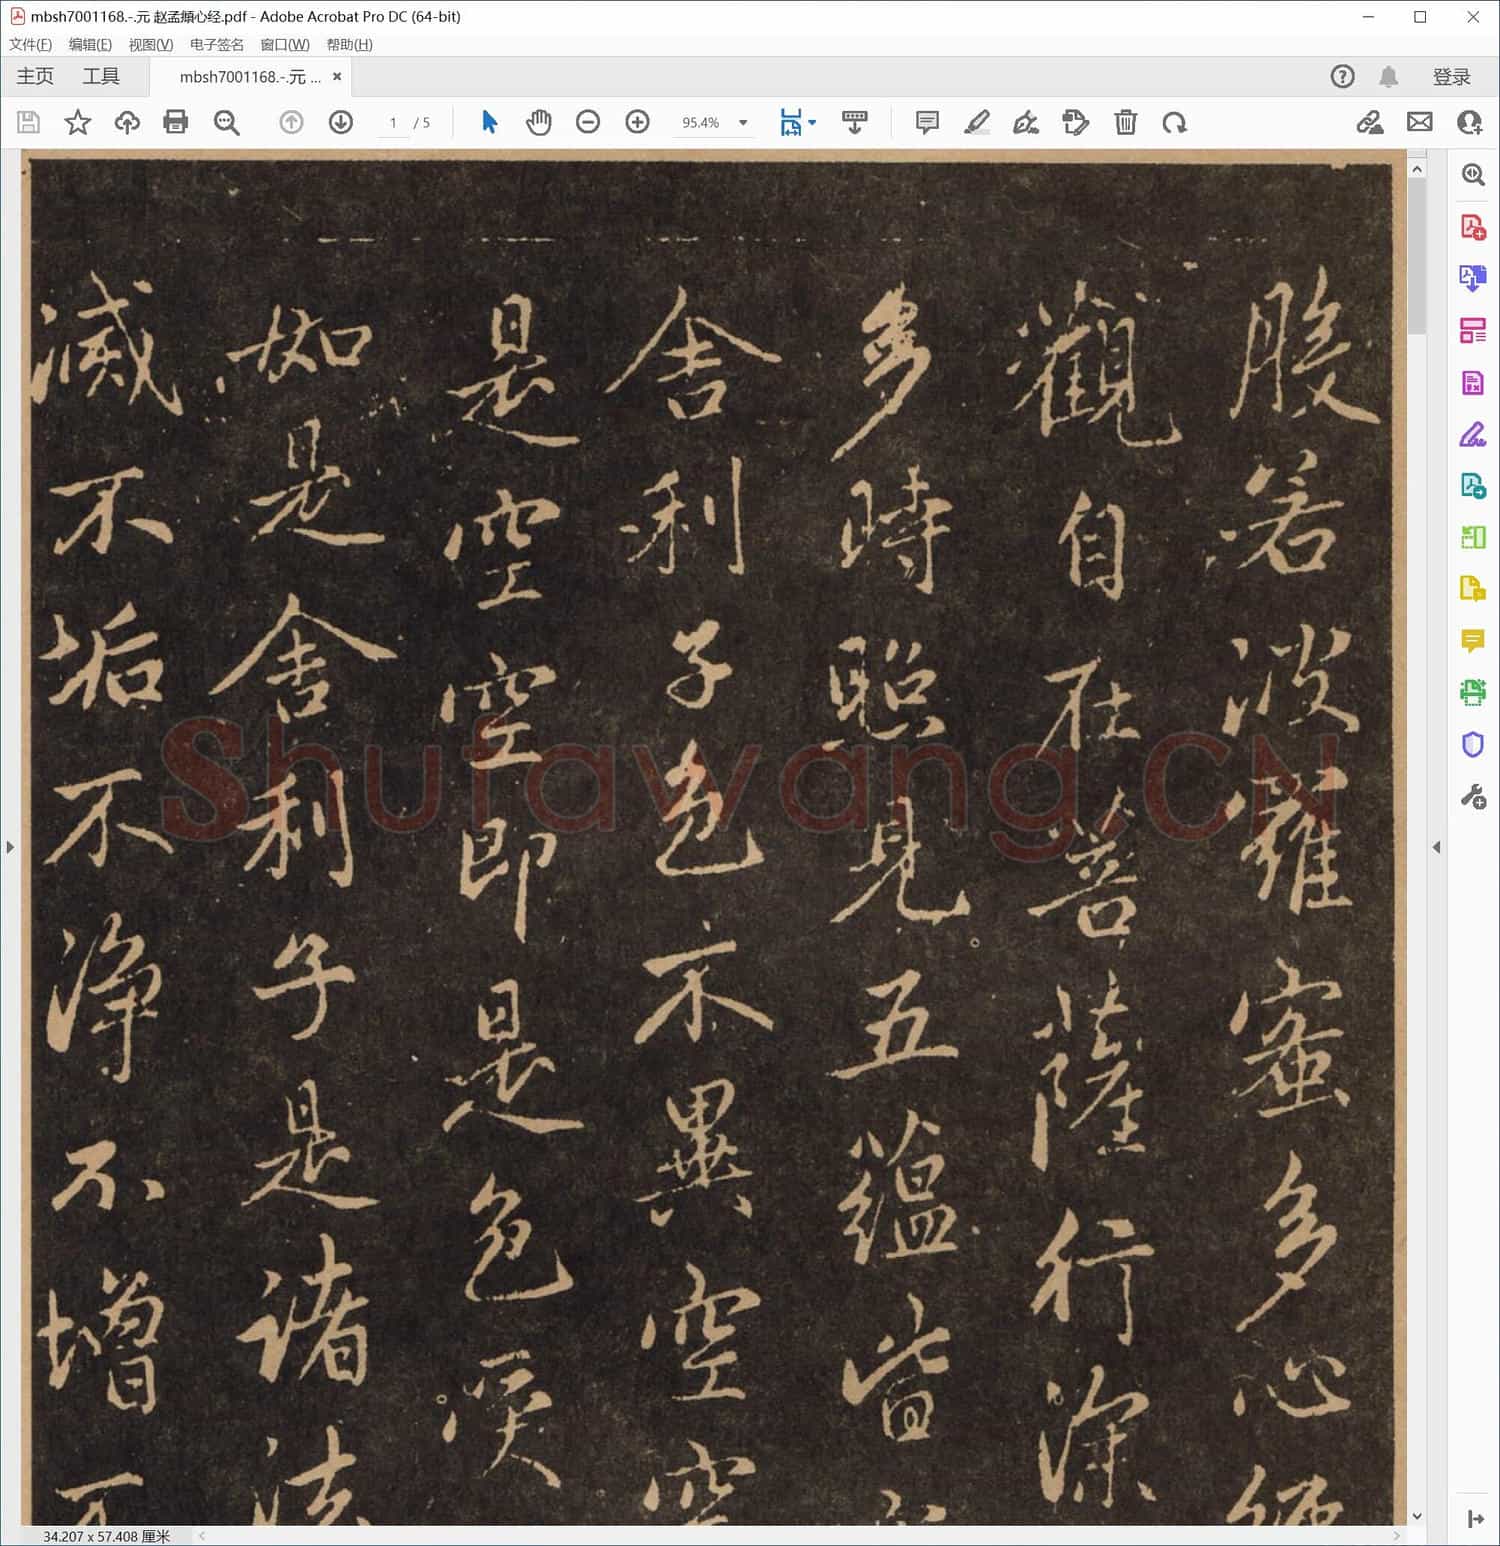 mbsh7001168.-.元 赵孟頫心经.pdf - Adobe Acrobat Pro DC (64-bit)
文件(F) 编辑(E) 视图(V) 电子签名 窗口(W) 帮助(H)
主页 工具 mbsh7001168.-.元 ... × 登录
1 / 5 95.4%
般若波羅蜜多心經
觀自在菩薩行深
多時照見五蘊皆
舍利子色不異空空
是空空即是色受
如是舍利子是諸法
滅不垢不淨不增不
Shufawang.CN
34.207 x 57.408 厘米